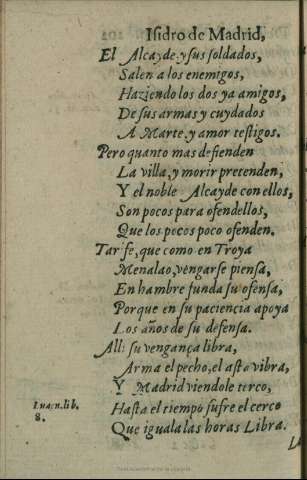 Isidro de Madrid,
El Alcayde y sus soldados,
Salen a los enemigos,
Haziendo los dos ya amigos,
De sus armas y cuydados
A Marte, y amor testigos.
Pero quanto mas defienden
La villa, y morir pretenden,
Y el noble Alcayde con ellos,
Son pocos para ofendellos,
Que los pocos poco ofenden.
Tarife, que como en Troya
Menalao, vengarse piensa,
En hambre funda su ofensa,
Porque en su paciencia apoya
Los años de su defensa.
Alli su vengança libra,
Arma el pecho, el asta vibra,
Y Madrid viendole terco,
Lucan. lib. 8.
Hasta el tiempo sufre el cerco
Que iguala las horas Libra.